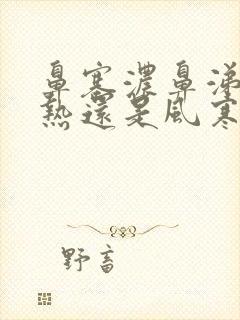 鼻塞濃鼻涕
熱還是風寒
野畜